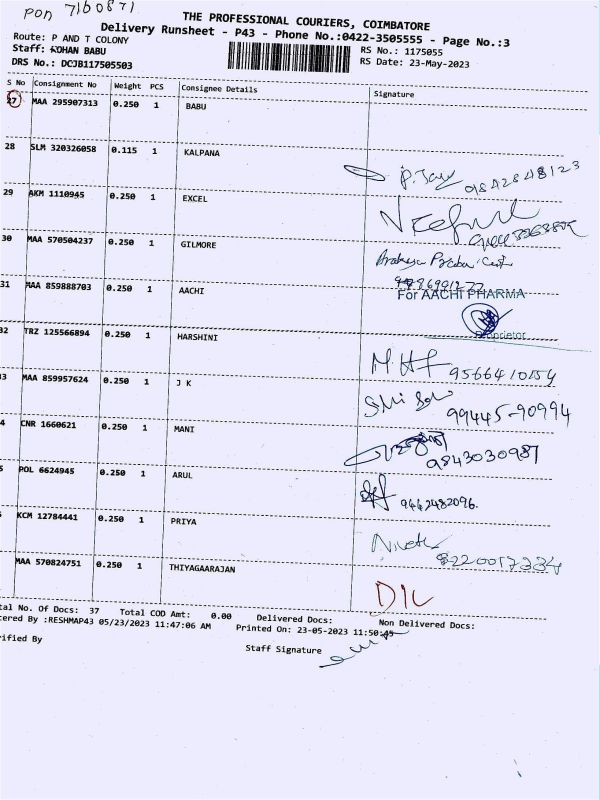 PON 7160871
THE PROFESSIONAL COURIERS, COIMBATORE
Delivery Runsheet - P43 - Phone No.:0422-3505555 - Page No.:3
Route: P AND T COLONY
RS No.: 1175055
Staff: ROHAN BABU
RS Date: 23-May-2023
DRS No.: DCJB117505503
S No Consignment No Weight PCS Consignee Details Signature
27 MAA 295907313 0.250 1 BABU
28 SLM 320326058 0.115 1 KALPANA
9842848123
29 AKM 1110945 0.250 1 EXCEL
30 MAA 570504237 0.250 1 GILMORE
31 MAA 859888703 0.250 1 AACHI
For AACHI PHARMA
Proprietor
32 TRZ 125566894 0.250 1 HARSHINI
9566410154
3 MAA 859957624 0.250 1 J K
99445-90994
4 CNR 1660621 0.250 1 MANI
9843030987
5 POL 6624945 0.250 1 ARUL
9442482096.
KCM 12784441 0.250 1 PRIYA
8220017334
MAA 570824751 0.250 1 THIYAGAARAJAN
D/L
tal No. Of Docs: 37 Total COD Amt: 0.00 Delivered Docs: Non Delivered Docs:
tered By :RESHMAP43 05/23/2023 11:47:06 AM Printed On: 23-05-2023 11:50:45
rified By
Staff Signature